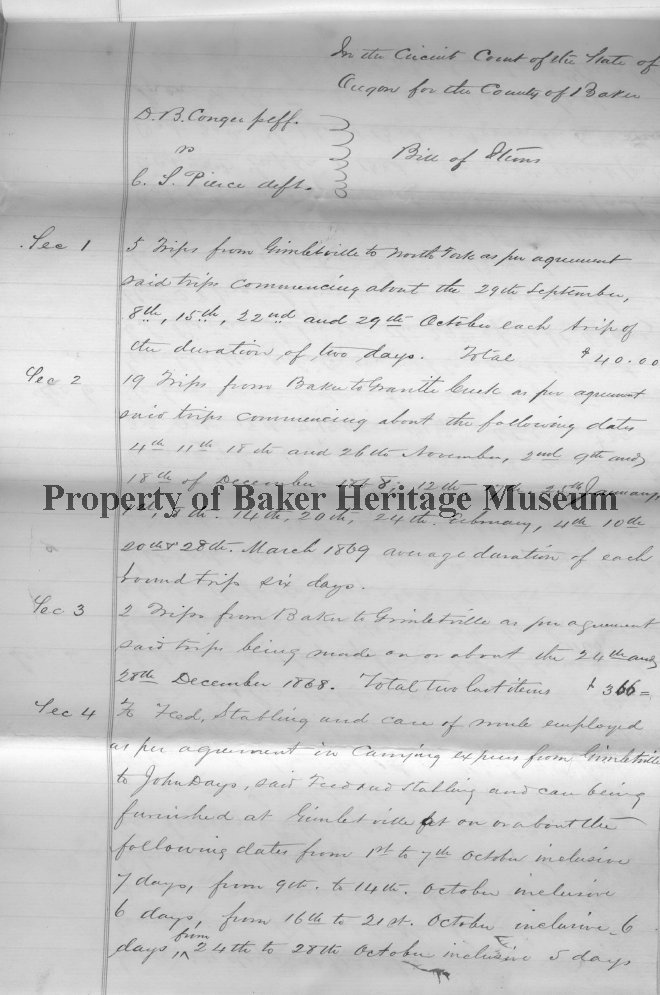 In the Circuit Court of the State of
Oregon for the County of Baker
D. B. Conger plff.
vs
C. S. Pierce deft.
Bill of Items
Sec 1
5 Trips from Gimletville to North Fork as per agreement
said trips commencing about the 29th September,
8th, 15th, 22nd and 29th October each trip of
the duration of two days. Total $40.00
Sec 2
19 Trips from Baker to Granite Creek as per agreement
said trips commencing about the following dates
4th 11th 18th and 26th November, 2nd 9th and
18th of December 1868, 12th January,
Property of Baker Heritage Museum
14th, 20th, 24th February, 4th 10th
20th & 28th March 1869 average duration of each
round trip six days.
Sec 3
2 Trips from Baker to Gimletville as per agreement
said trips being made on or about the 24th and
28th December 1868. Total two last items $366=
Sec 4
To Feed, Stabling and care of mule employed
as per agreement in Carrying express from Gimletville
to John Days, said Feed and Stabling and care being
furnished at Gimletville on or about the
following dates from 1st to 7th October inclusive
7 days, from 9th. to 14th. October inclusive
6 days, from 16th to 21st. October inclusive 6
days, from 24th to 28th October inclusive 5 days